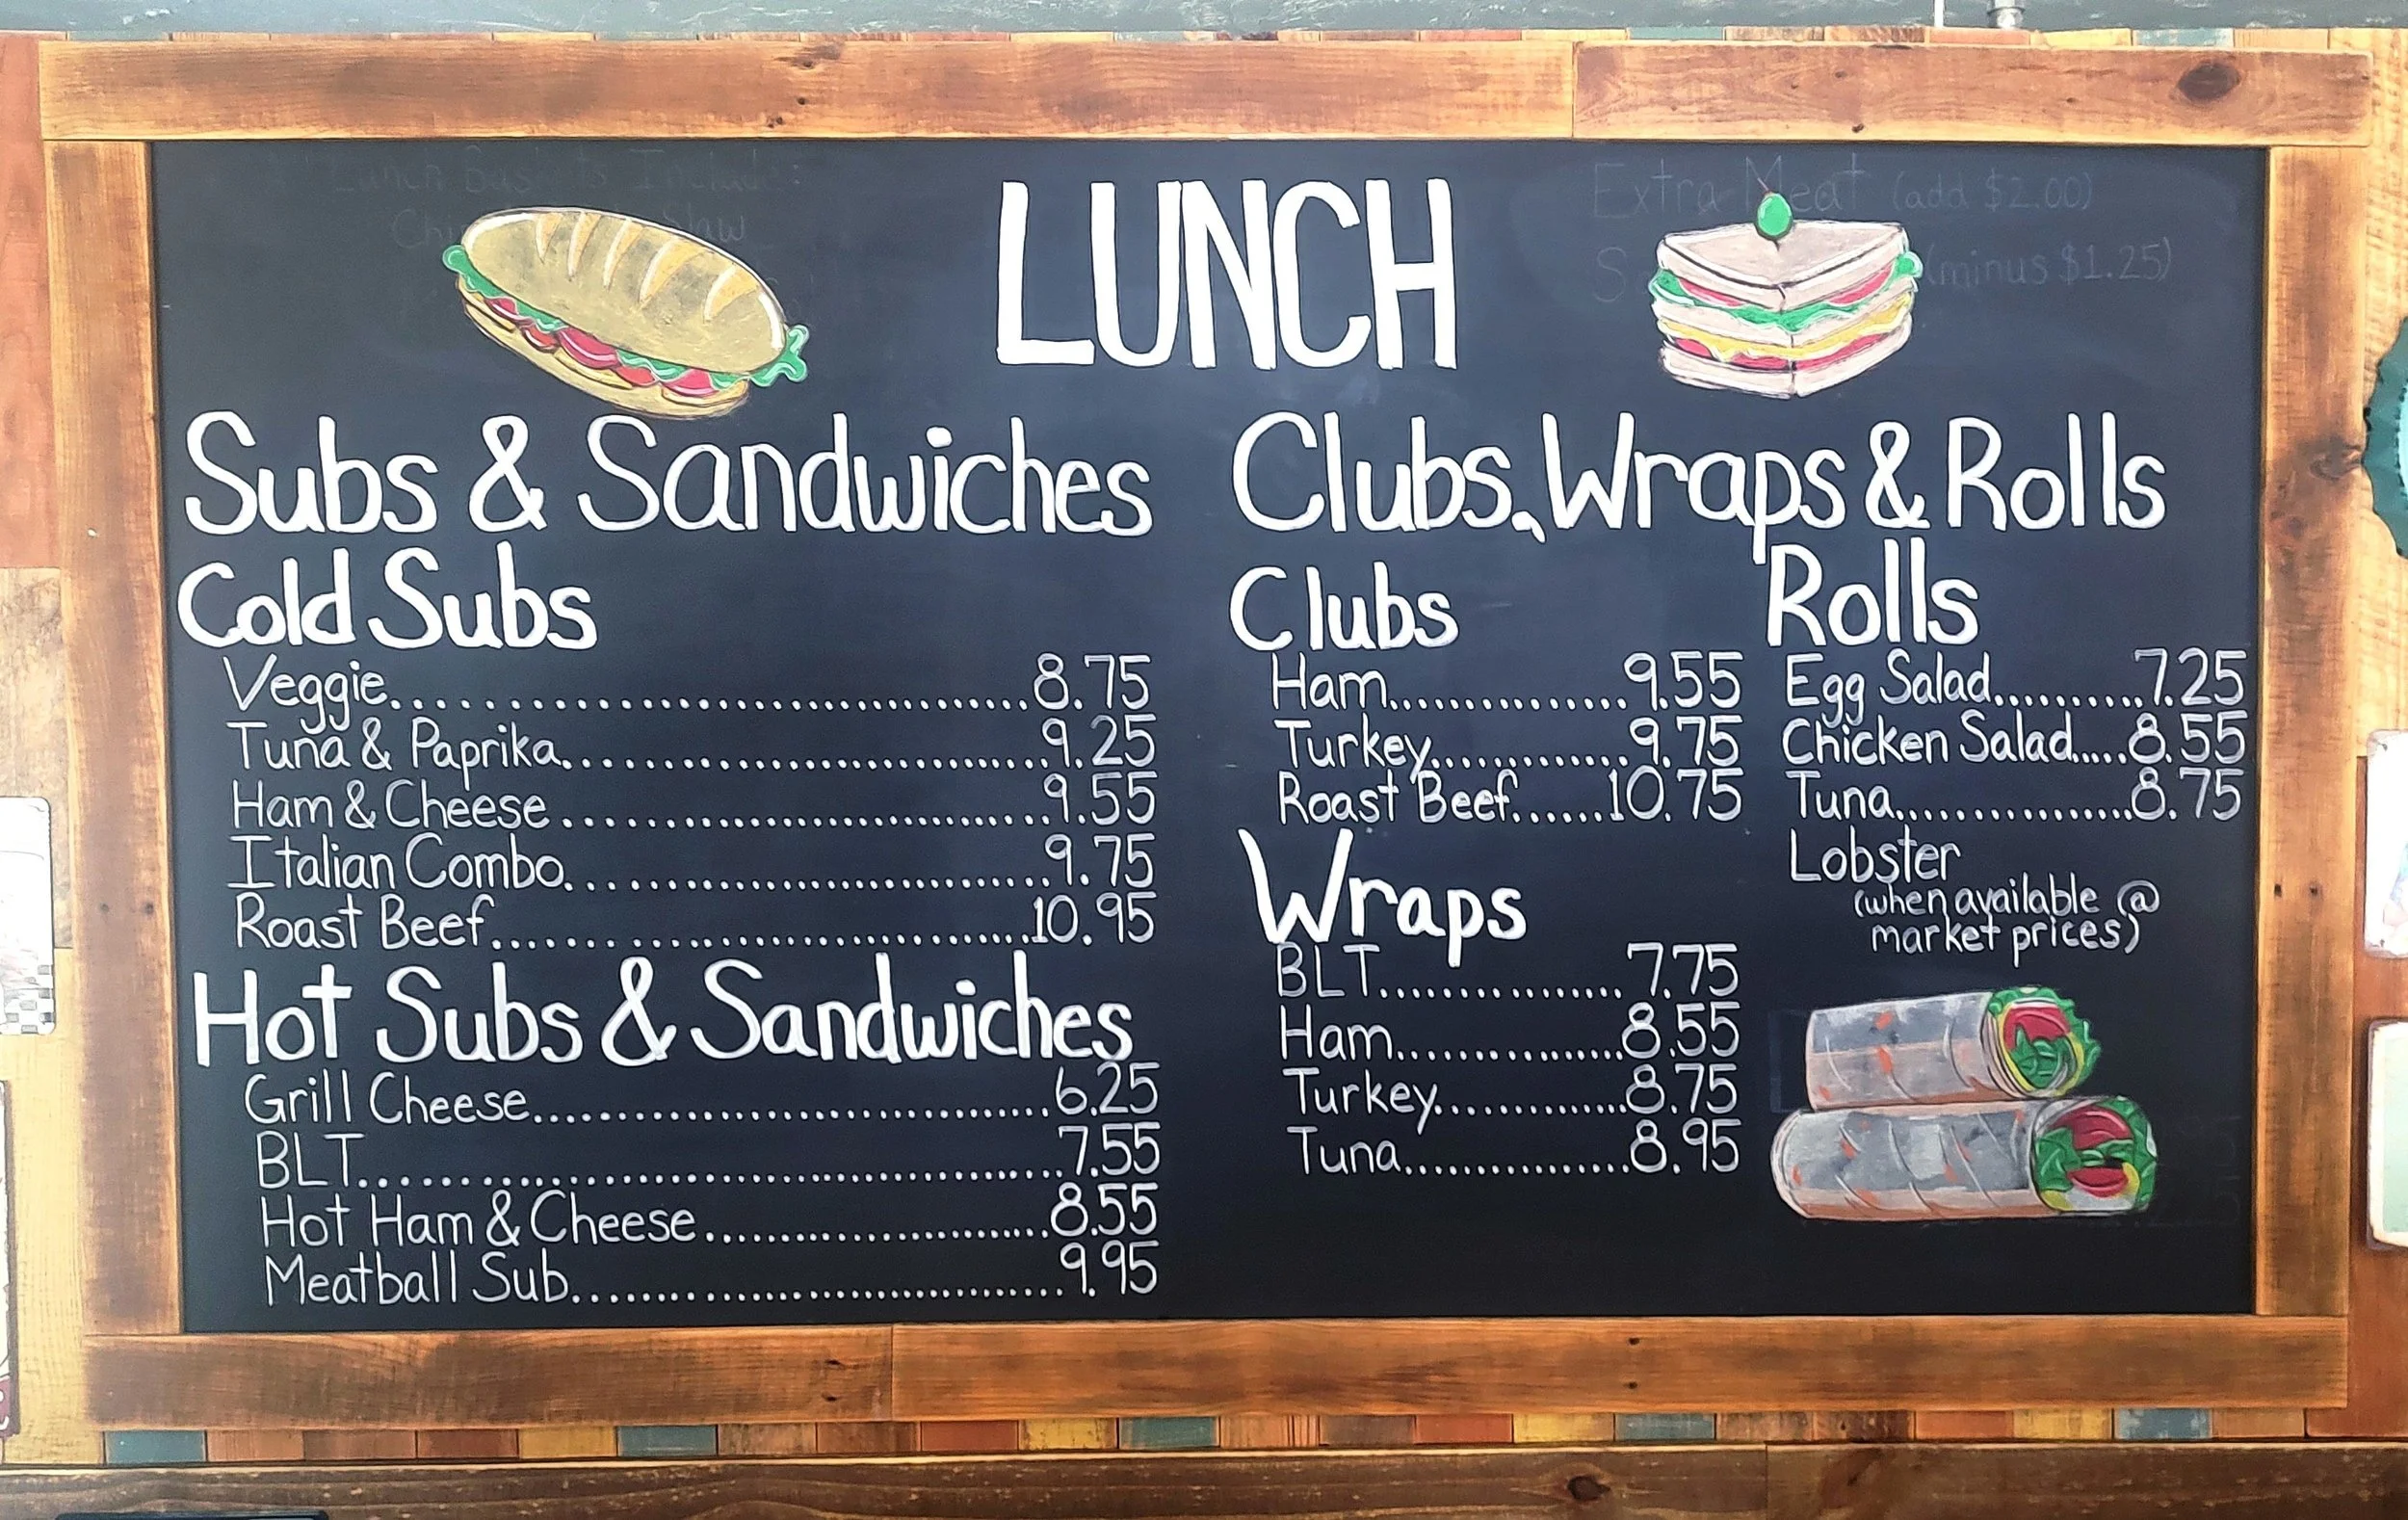 Lunch Baskets Include:
Slaw
Extra Meat (add $2.00)
(minus $1.25)
LUNCH
Subs & Sandwiches
Cold Subs
Veggie..................................8.75
Tuna & Paprika..........................9.25
Ham & Cheese............................9.55
Italian Combo...........................9.75
Roast Beef..............................10.95
Hot Subs & Sandwiches
Grill Cheese............................6.25
BLT.....................................7.55
Hot Ham & Cheese........................8.55
Meatball Sub............................9.95
Clubs, Wraps & Rolls
Clubs
Ham...............9.55
Turkey............9.75
Roast Beef......10.75
Wraps
BLT............... 7.75
Ham...............8.55
Turkey............8.75
Tuna..............8.95
Rolls
Egg Salad..........7.25
Chicken Salad.....8.55
Tuna...............8.75
Lobster
(when available @
market prices)